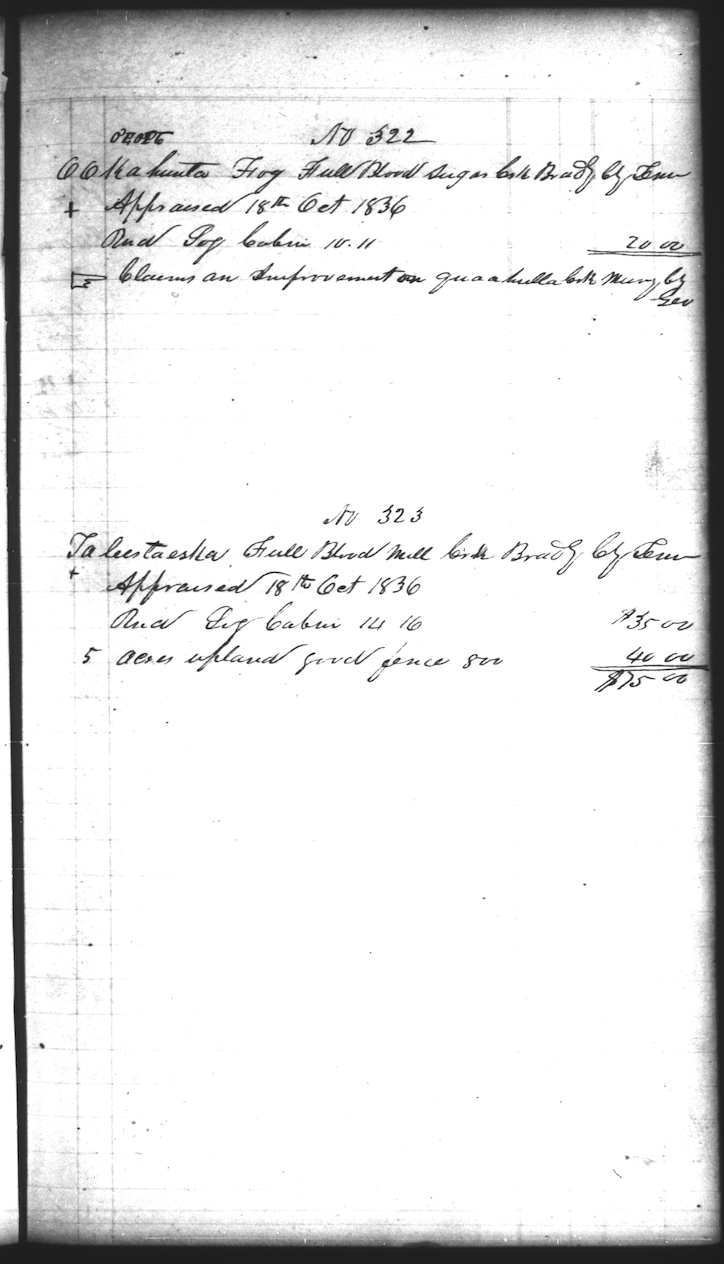 No 322
OOkahunta Frog Full Blood Sugar Crk Bradly Cty Tenn
+ Appraised 18th Oct 1836
Rnd Log Cabin 10.11 20 00
Claims an Improvement on quaahulla Crk Murry Cty
Geo
No 323
Talustaeska Full Blood Mill Crk Bradly Cty Tenn
+ Appraised 18th Oct 1836
Rnd Log Cabin 14 16 $35 00
5 acres upland good fence 800 40 00
$75 00